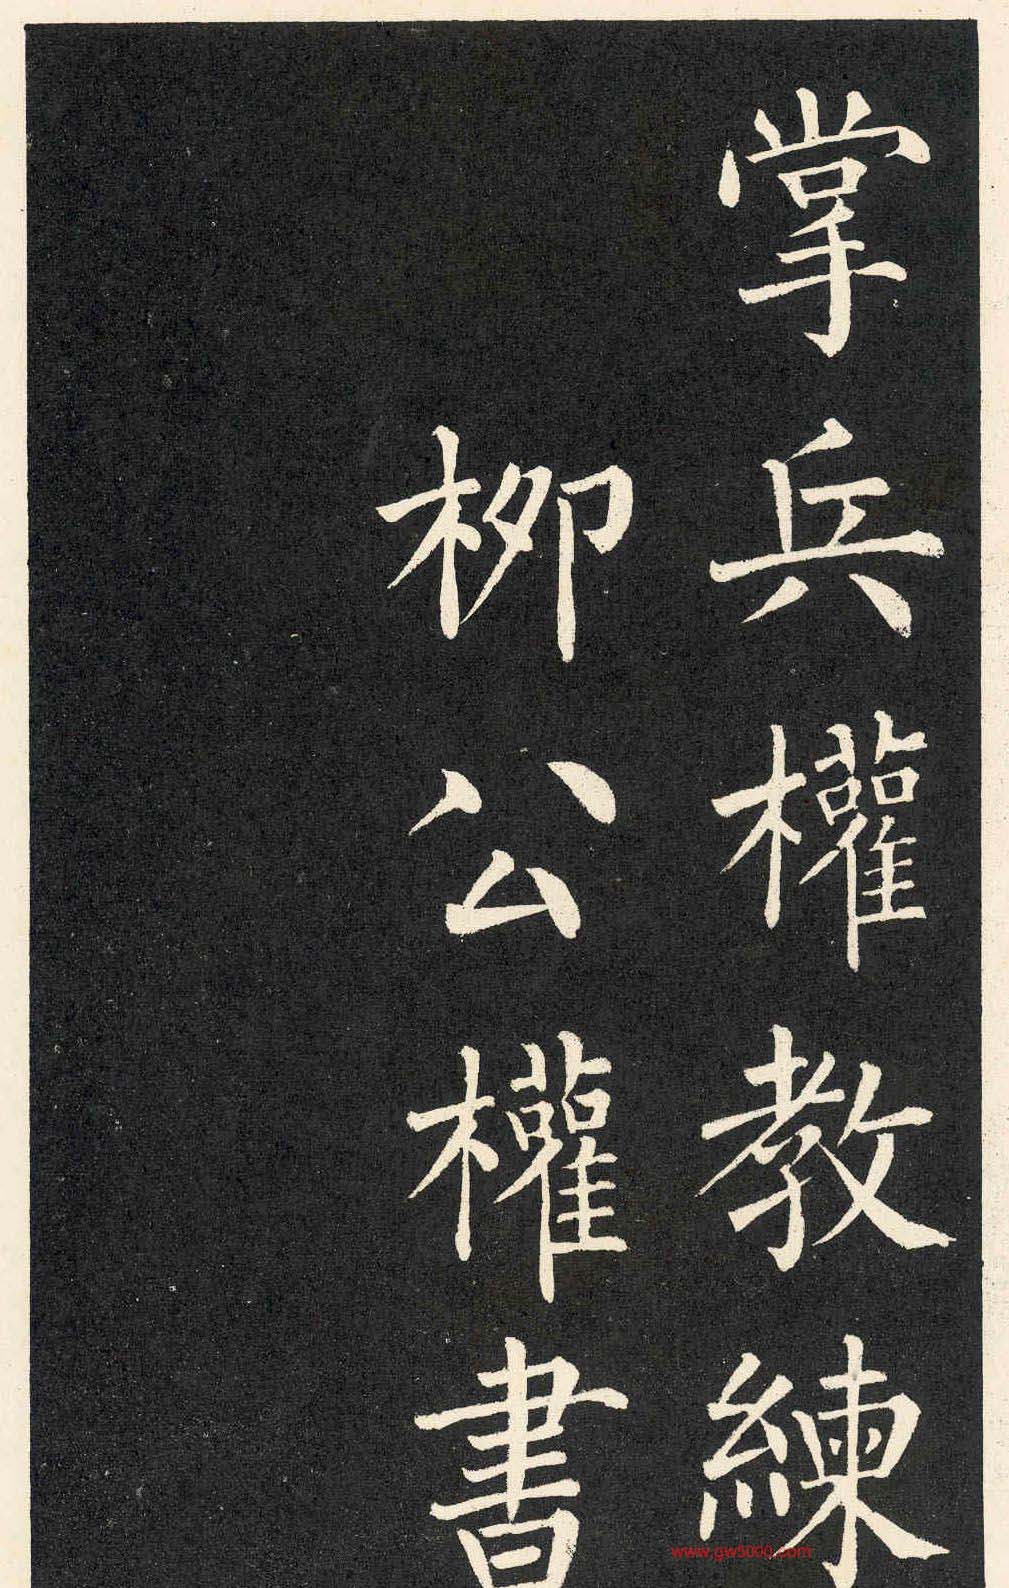 掌兵權教練
柳公權書
www.gw5000.com